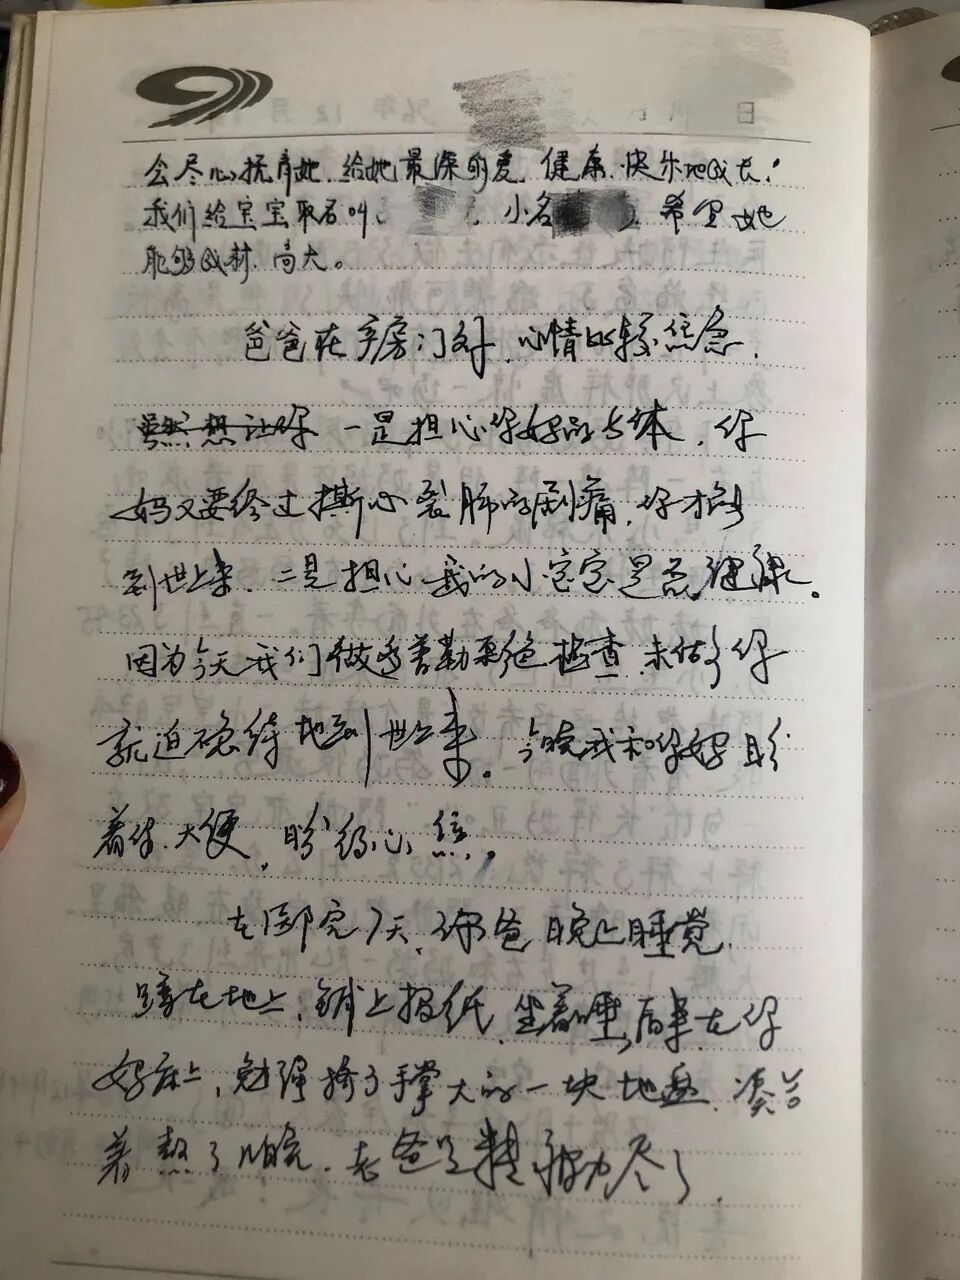 会尽心抚育她，给她最深的爱，健康、快乐地成长！
我们给宝宝取名叫，小名，希望她
能够成材、高大。
爸爸在产房门外，心情比较焦急，
一是担心你妈的身体，你
妈又要经过撕心裂肺的剧痛，你才能
到世上来，二是担心我的小宝宝是否健康。
因为今天我们做多普勒彩色检查，未做多你
就迫不急待地到世上来。今晚我和你妈盼
着你大便，盼得心焦。
在医院7天，你爸晚上睡觉
蹲在地上，铺上报纸，坐着睡，后来在你
妈床上，勉强挤了手掌大的一块地盘，凑合
着熬了几晚，老爸是精疲力尽了。